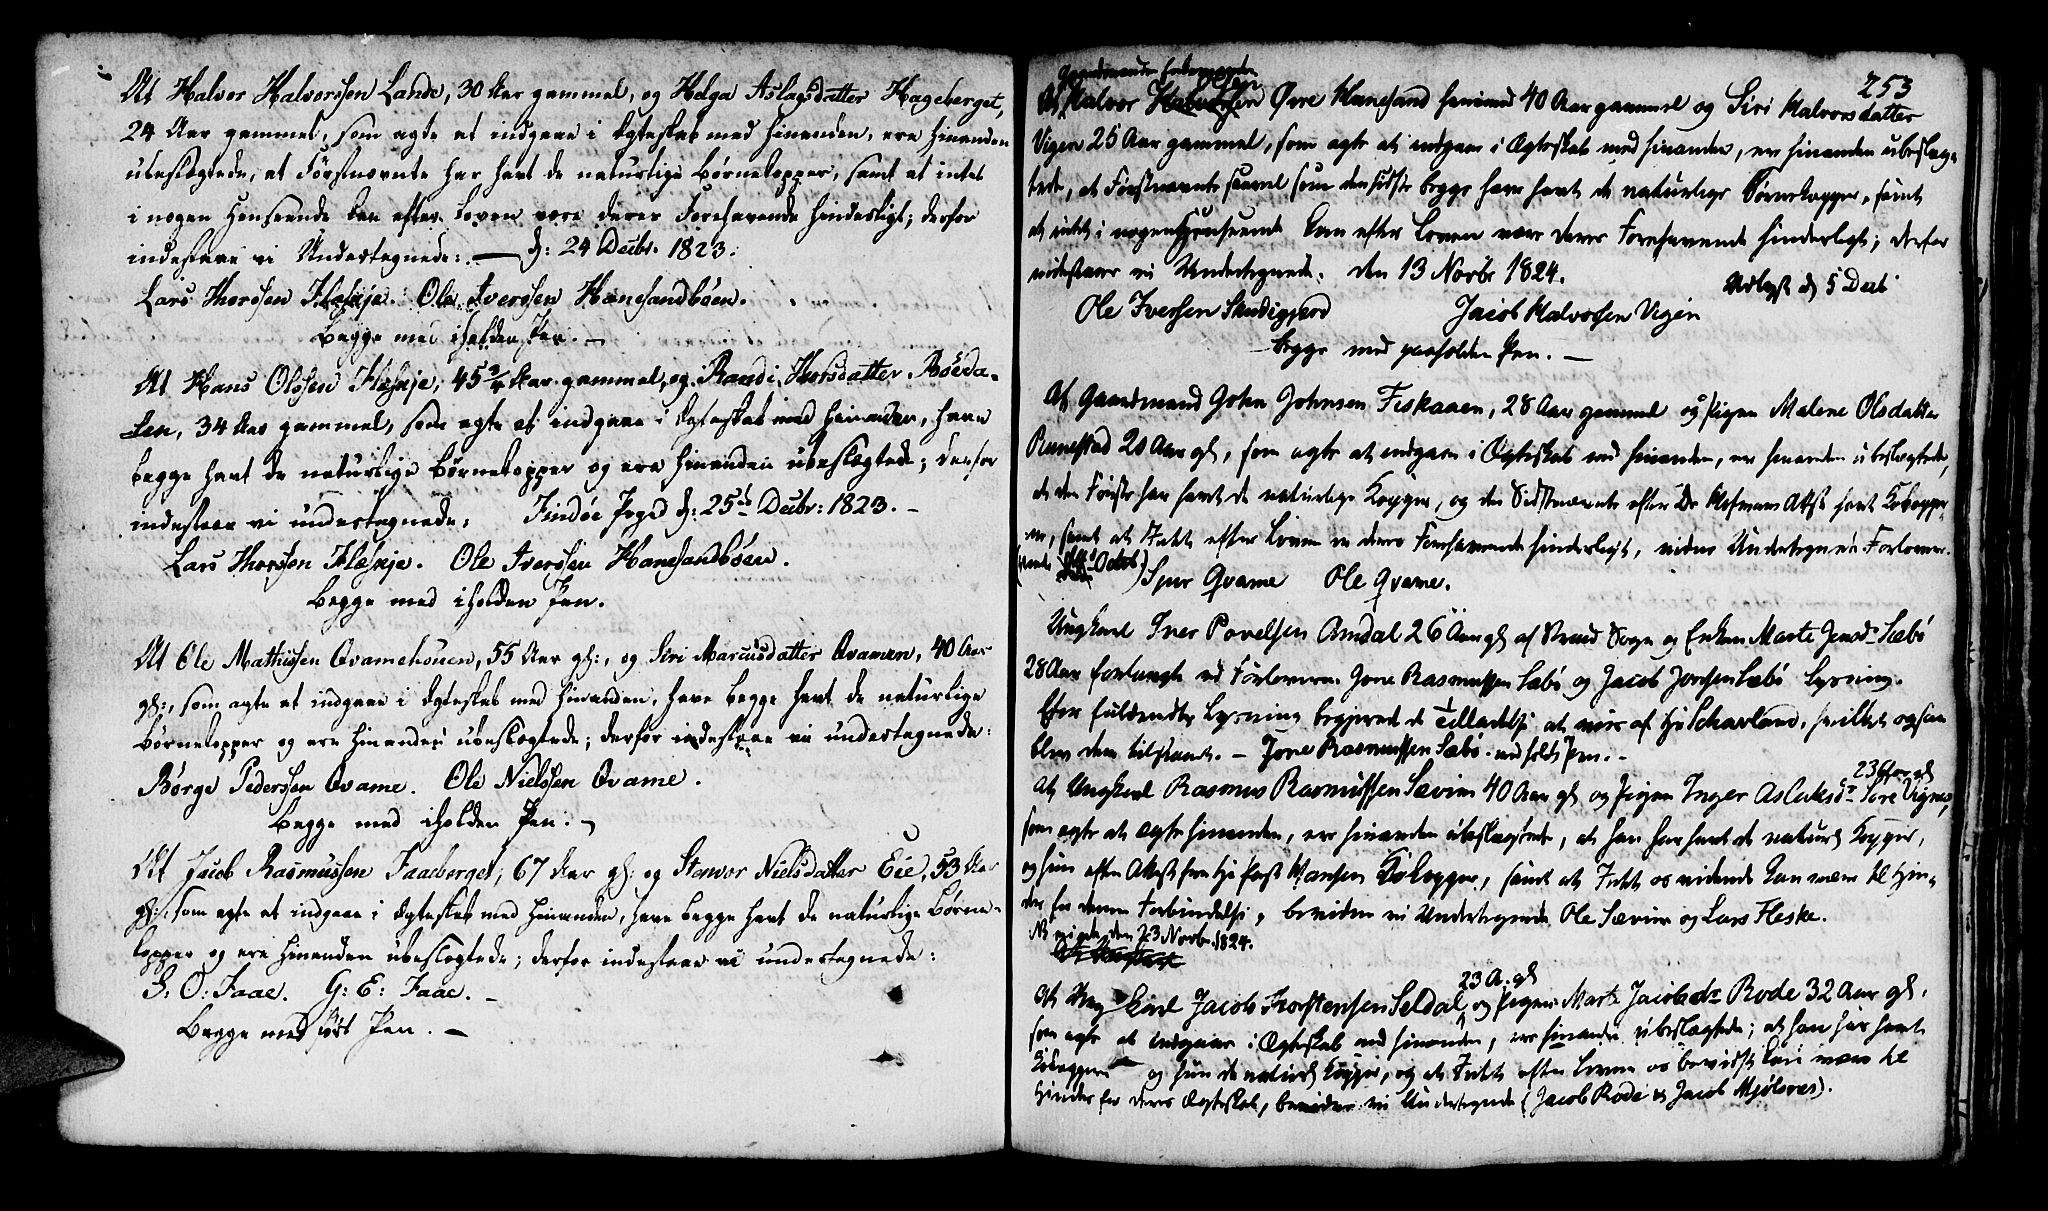 At Halvor Halvorssen Lande, 30 Aar gammel, og Helga Aslagsdatter Hageberget,
24 Aar gammel, som agte at indgaae i Ægteskab med hinanden, ere hinanden
ubeslægtede, at Førstnævnte har havt de naturlige Børnekopper, samt at intet
i nogen Henseende kan efter Loven være deres Forehavende hinderligt; derfor
indestaae vi Undertegnede: — d: 24 Decbr. 1823.
Lars Thorssen Flæskje. Ole Iverssen Hanesandbøen.
Begge med iholden Pen. —
At Hans Olssen Flæskje, 45 Aar gammel, og Randi Thorsdatter Bøeda-
len, 34 Aar gammel, som agte at indgaae i Ægteskab med hinanden, have
begge havt de naturlige Børnekopper og ere hinanden ubeslægtede; derfor
indestaae vi undertegnede: Findøe Prgd d: 25de Decbr: 1823. —
Lars Thorssen Flæskje. Ole Iverssen Hanesandbøen.
Begge med iholden Pen.
At Ole Mathissen Qvamehouen, 55 Aar gl:, og Siri Marcusdatter Qvamen, 40 Aar
gl:, som agte at indgaae i Ægteskab med hinanden, have begge havt de naturlige
Børnekopper og ere hinanden ubeslægtede; derfor indestaae vi undertegnede:
Børge Pederssen Qvame. Ole Nielssen Qvame.
Begge med iholden Pen. —
At Jacob Rasmussen Faaeberget, 67 Aar gl: og Stenvor Nielsdatter Eie, 53 Aar
gl:, som agte at indgaae i Ægteskab med hinanden, have begge havt de naturlige Børne-
kopper og ere hinanden ubeslægtede; derfor indestaae vi undertegnede:
S: O: Faae. G: E: Faae. —
Begge med ført Pen. —
253
At Halvor Øvre Hanesand henimod 40 Aar gammel og Siri Halvorsdatter
Vigen 25 Aar gammel, som agte at indgaae i Ægteskab med hinanden, ere hinanden ubeslæg-
tede, at Førstnævnte saavel som den sidste begge have havt de naturlige Børnekopper, samt
at intet i nogen Henseende kan efter Loven være deres Forehavende hinderligt; derfor
indestaae vi Undertegnede. den 13 Novbr 1824. Udlyst d 5 Decb
Ole Iverssen Jacob Halvorssen Vigen
begge med paaholden Pen. —
At Gaardmand John Johnsen Fiskaaen, 28 Aar gammel og Pigen Malene Olsdatter
Runestad 20 Aar gl, som agte at indgaae i Ægteskab med hinanden, ere hinanden ubeslægtede,
at den Første har havt de naturlige Kopper, og den Sidstnævnte efter Dr Hofmans Attest havt Kokopper-
ne, samt at Intet efter Loven er deres Forehavende hinderligt, vidner Undertegnede Forlovere.
Octob) Sjur Qvame Ole Qvame.
Ungkarl Iver Povelsen Amdal 26 Aar gl af Strand Sogn og Enken Marte Jensdr Sæbø
28 Aar forlangte ved Forloverne Jone Rasmussen Sæbø og Jacob Sæbø Lysning.
Efter fuldendte Lysning begjerede de Tilladelse at vies af Hr Scharland, hvilket ogsaa
blev dem tilstaaet. — Jone Rasmussen Sæbø med holdt Pen. —
23 Aar gl
At Ungkarl Rasmus Rasmussen Sævim 40 Aar gl og Pigen Inger Aslaksdr Søre Vignes,
som agte at ægte hinanden, ere hinanden ubeslægtede, at han har havt de naturl Kopper,
og hun efter Attest fra Hr Past Hansen Kokopper, samt at Intet os vidende kan være til Hin-
der for denne Forbindelse, bevidne vi Undertegnede Ole Sævim og Lars Fleske.
den 23 Novbr. 1824.
23 A. gl
At Ungkarl Jacob Torstensen Seldal og Pigen Marte Jacobsdr Rode 32 Aar gl.
som agte at indgaae i Ægteskab med hinanden, ere hinanden ubeslægtede; at han har havt
Kokopper og hun de naturl Kopper, og at Intet efter Loven os bevidst kan være til
Hinder for deres Ægteskab, bevidne vi Undertegnede (Jacob Rode og Jacob Mjølsnes).